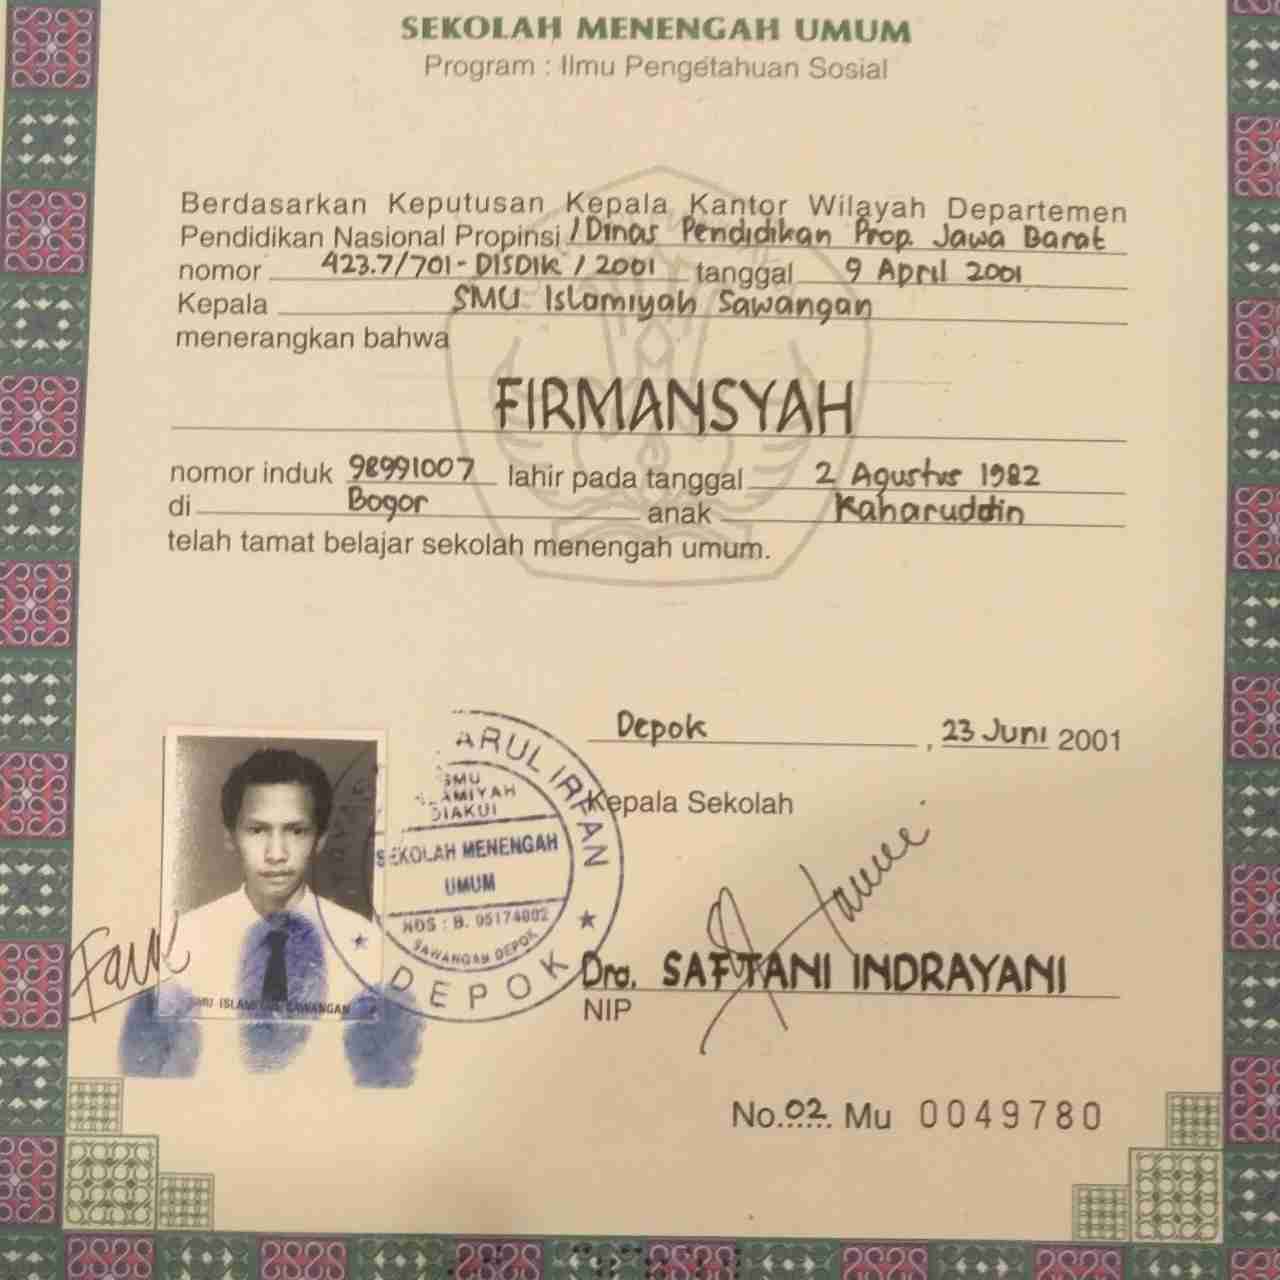 SEKOLAH MENENGAH UMUM
Program : Ilmu Pengetahuan Sosial
Berdasarkan Keputusan Kepala Kantor Wilayah Departemen
Pendidikan Nasional Propinsi / Dinas Pendidikan Prop. Jawa Barat
nomor 423.7/701-DISDIK/2001 tanggal 9 April 2001
Kepala SMU Islamiyah Sawangan
menerangkan bahwa
FIRMANSYAH
nomor induk 98991007 lahir pada tanggal 2 Agustus 1982
di Bogor anak Kaharuddin
telah tamat belajar sekolah menengah umum.
Depok, 23 Juni 2001
Kepala Sekolah
ARUL IRFAN
SMU
LAMIYAH
DIAKUI
SEKOLAH MENENGAH
UMUM
NDS : B. 05174002
SAWANGAN DEPOK
DEPOK
SMU ISLAMIYAH SAWANGAN
Dra. SAFTANI INDRAYANI
NIP
No. 02 Mu 0049780